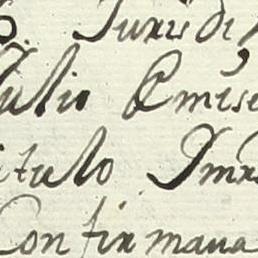 Juris di
Julio Emise
itulo Imm
Confirmava